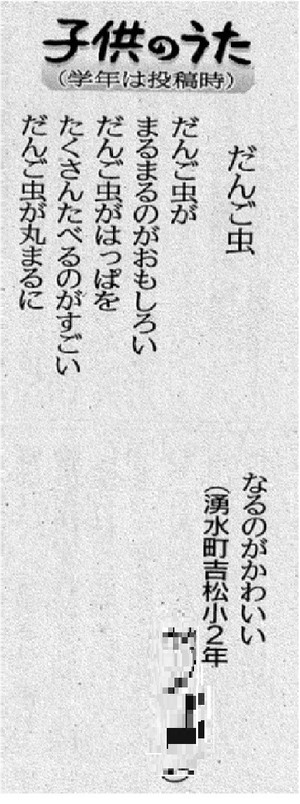 子供のうた
(学年は投稿時)
だんご虫
だんご虫が
まるまるのがおもしろい
だんご虫がはっぱを
たくさんたべるのがすごい
だんご虫が丸まるに
なるのがかわいい
(湧水町吉松小2年